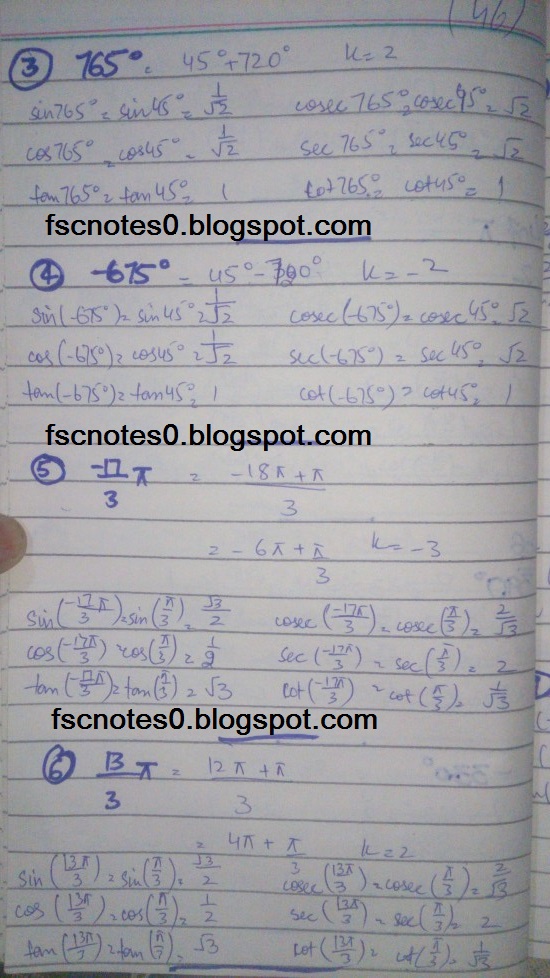 (46)
③ 765° = 45° + 720° k = 2
sin765° = sin45° = 1/√2 cosec765° = cosec45° = √2
cos765° = cos45° = 1/√2 sec765° = sec45° = √2
tan765° = tan45° = 1 cot765° = cot45° = 1
fscnotes0.blogspot.com
④ -675° = 45° - 720° k = -2
sin(-675°) = sin45° = 1/√2 cosec(-675°) = cosec45° = √2
cos(-675°) = cos45° = 1/√2 sec(-675°) = sec45° = √2
tan(-675°) = tan45° = 1 cot(-675°) = cot45° = 1
fscnotes0.blogspot.com
⑤ -17/3 π = (-18π + π)/3
= -6π + π/3 k = -3
sin(-17π/3) = sin(π/3) = √3/2 cosec(-17π/3) = cosec(π/3) = 2/√3
cos(-17π/3) = cos(π/3) = 1/2 sec(-17π/3) = sec(π/3) = 2
tan(-17π/3) = tan(π/3) = √3 cot(-17π/3) = cot(π/3) = 1/√3
fscnotes0.blogspot.com
⑥ 13/3 π = (12π + π)/3
= 4π + π/3 k = 2
sin(13π/3) = sin(π/3) = √3/2 cosec(13π/3) = cosec(π/3) = 2/√3
cos(13π/3) = cos(π/3) = 1/2 sec(13π/3) = sec(π/3) = 2
tan(13π/3) = tan(π/3) = √3 cot(13π/3) = cot(π/3) = 1/√3